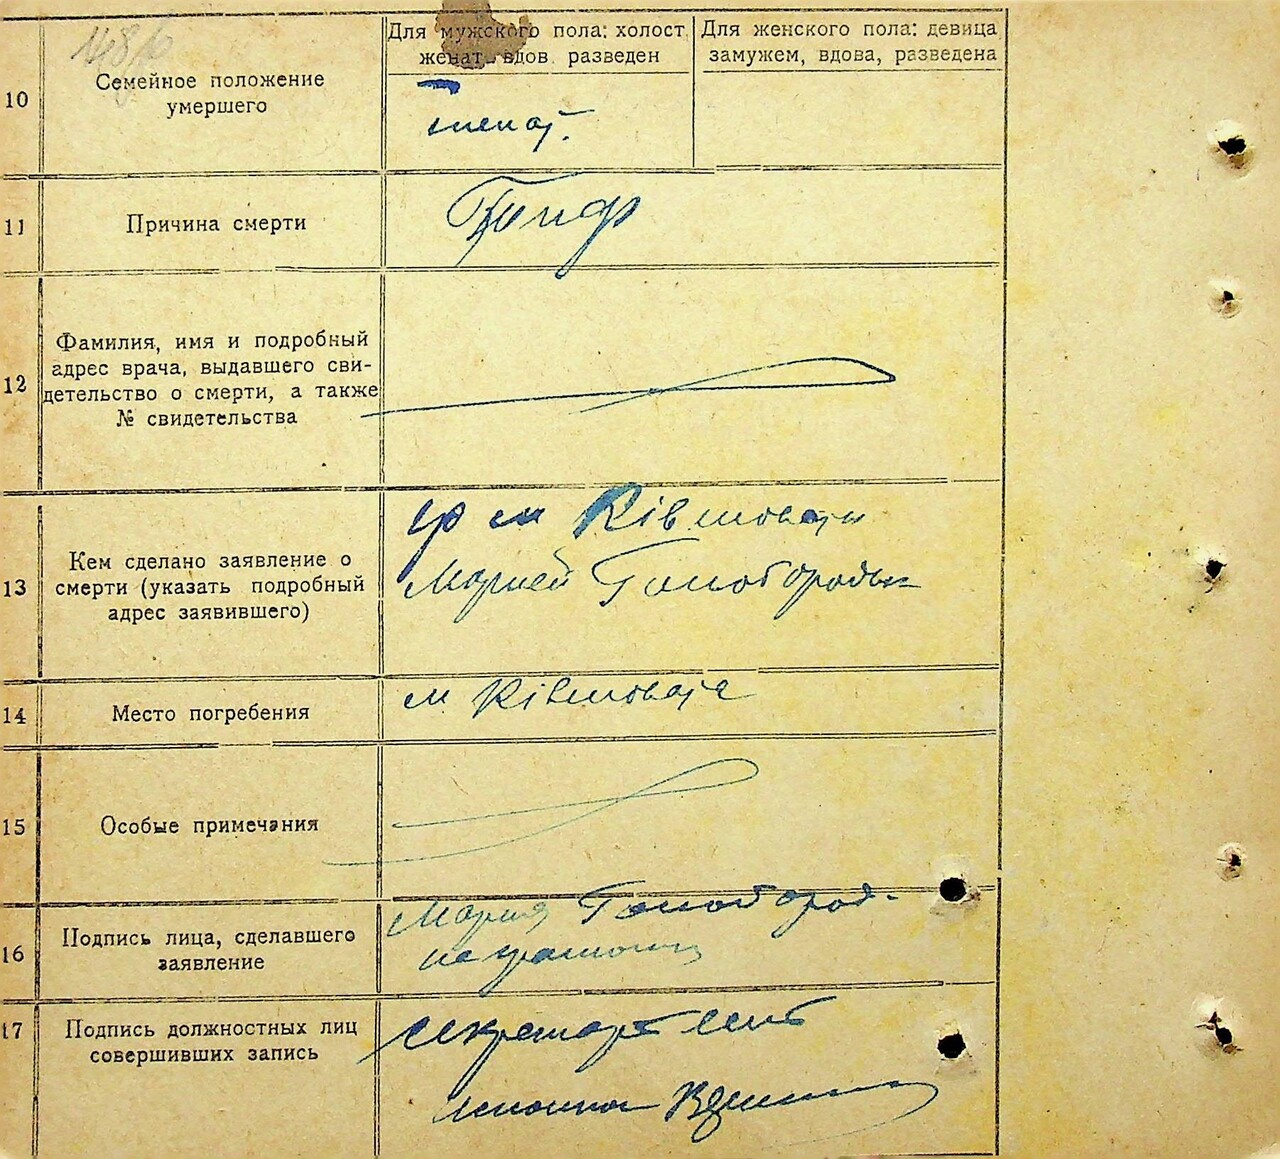 Для мужского пола: холост
женат вдов разведен
Для женского пола: девица
замужем, вдова, разведена
10
Семейное положение
умершего
женат.
11
Причина смерти
Тиф
12
Фамилия, имя и подробный
адрес врача, выдавшего сви-
детельство о смерти, а также
№ свидетельства
13
Кем сделано заявление о
смерти (указать подробный
адрес заявившего)
гр м Ківшовати
Марией
14
Место погребения
м Ківшовате
15
Особые примечания
16
Подпись лица, сделавшего
заявление
Мария
неграмотн
17
Подпись должностных лиц
совершивших запись
Секретарь